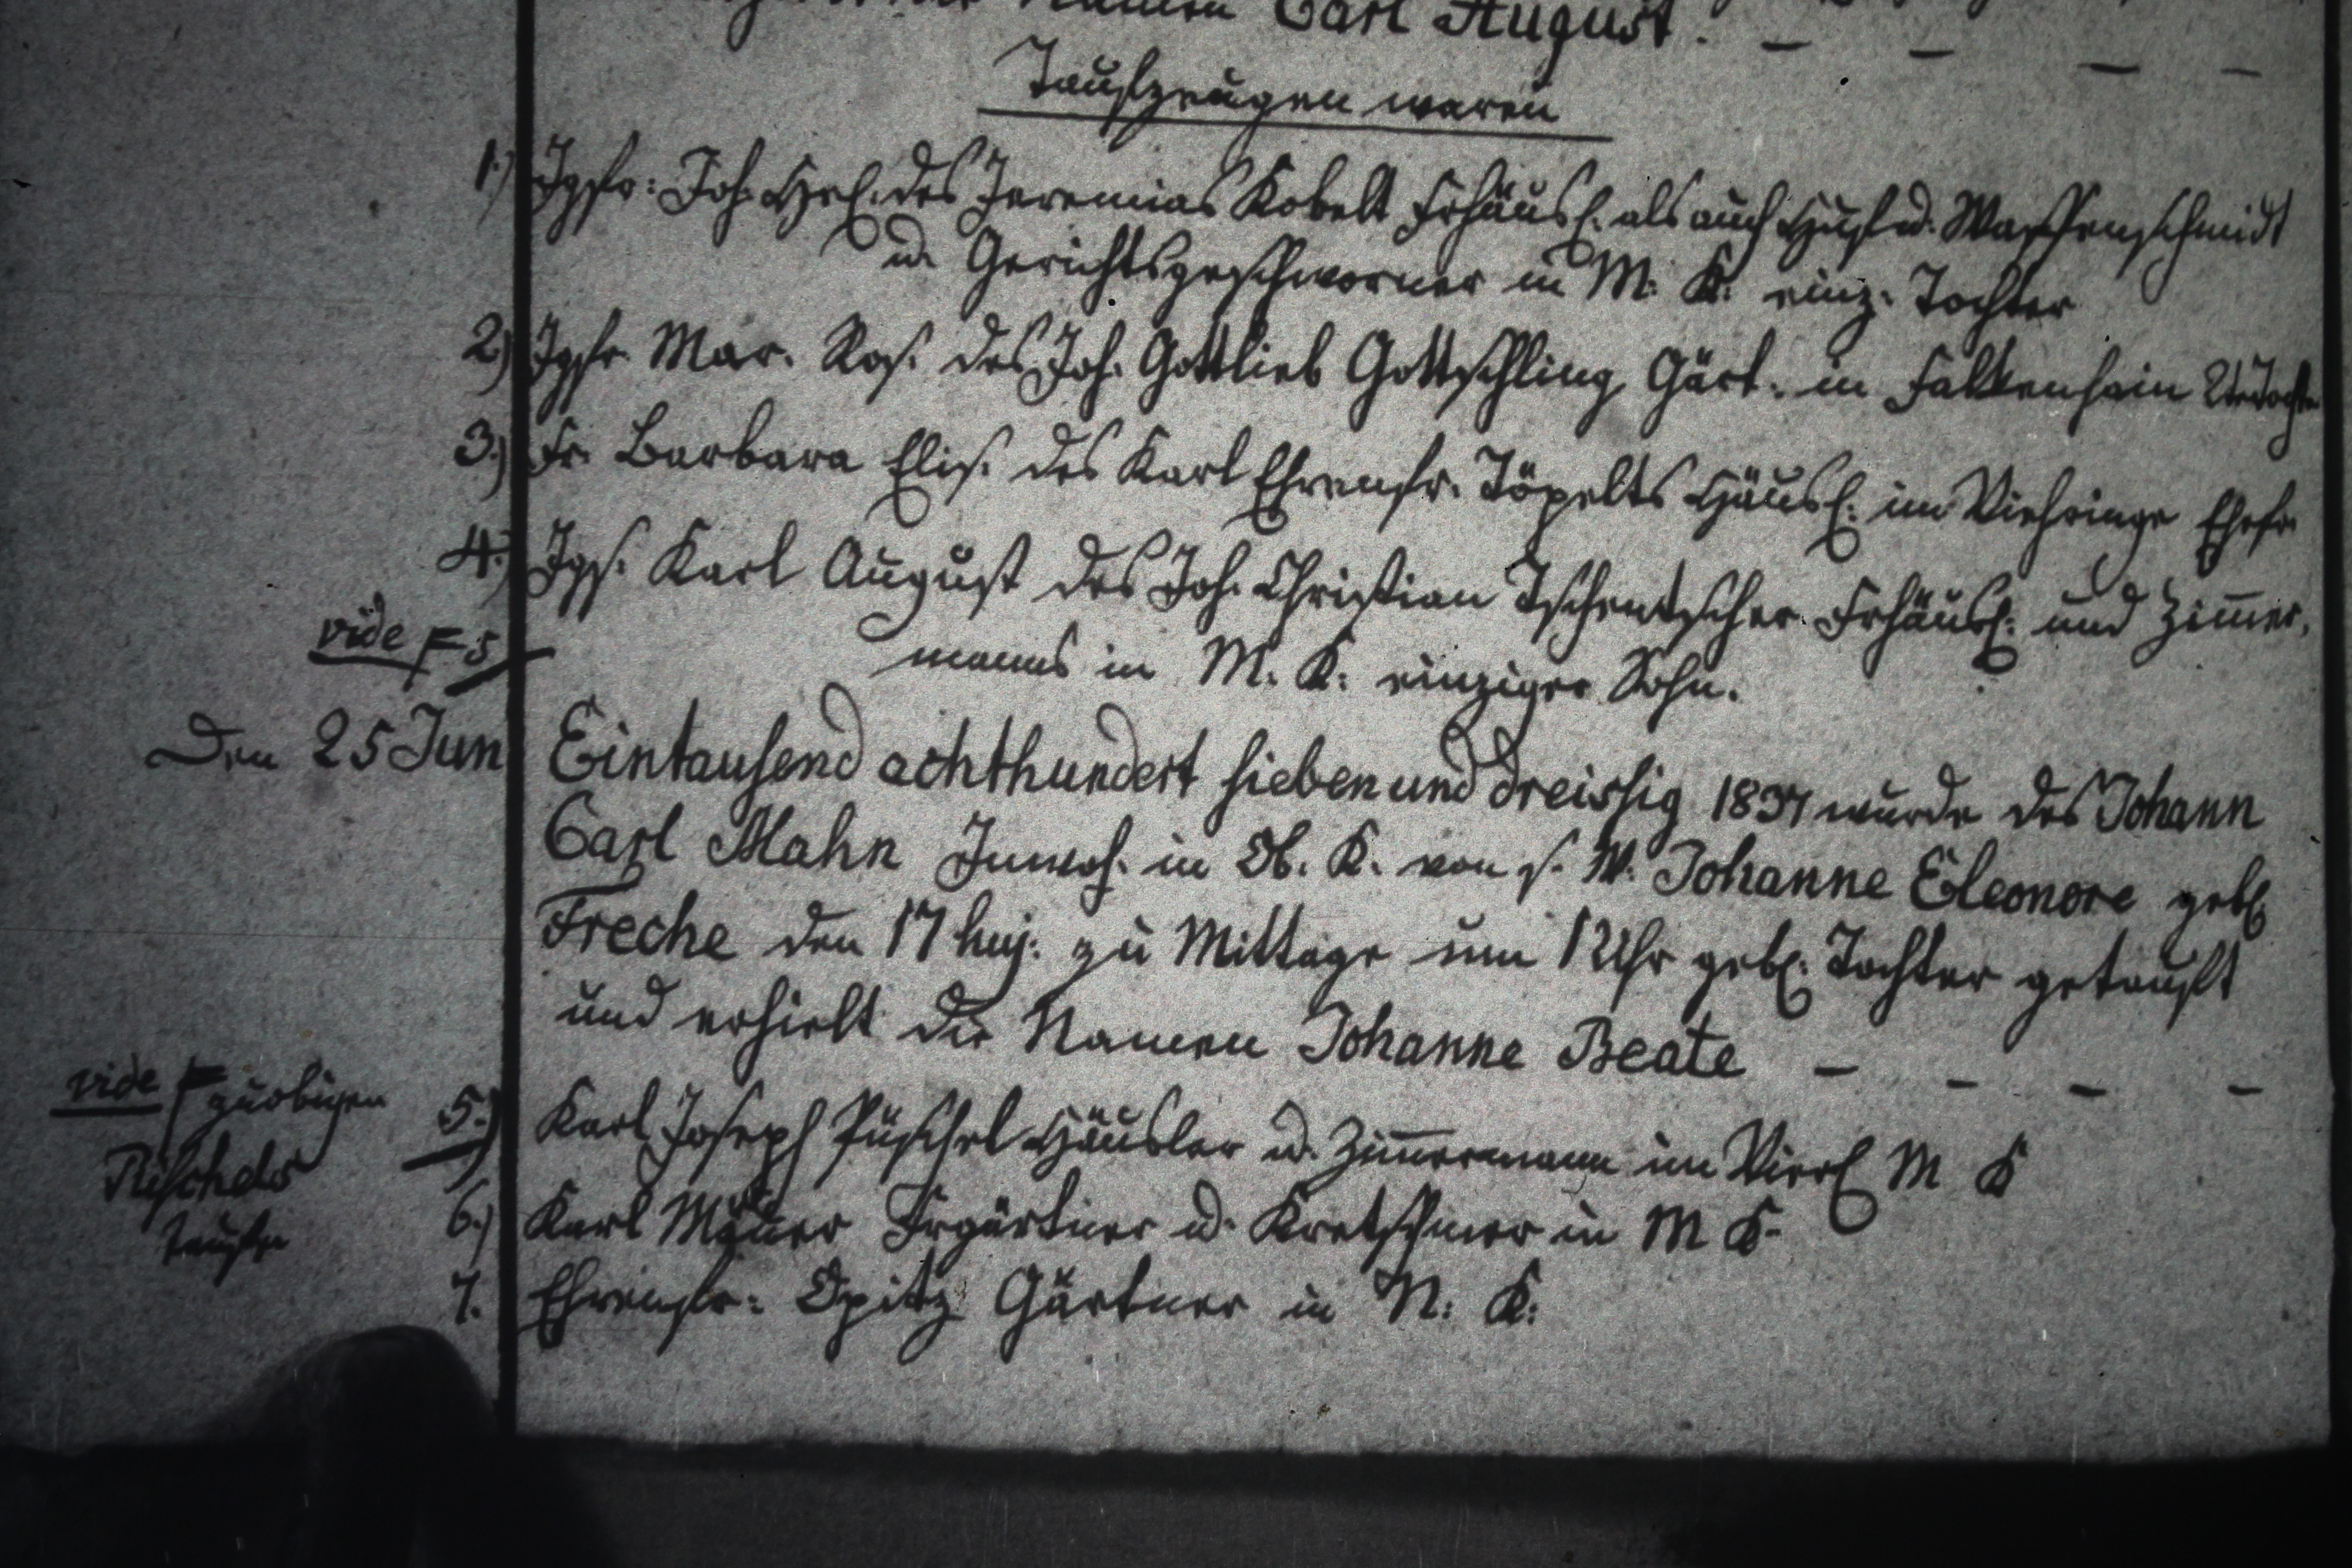 Namen Carl August. - - - -
Taufzeugen waren
1.) Jgfr: Joh. Hel. des Jeremias Kobelt Frhäusl. als auch Huf- u. Waffenschmidt
u. Gerichtsgeschworner in M. K: einz. Tochter
2.) Jgfr. Mar. Ros. des Joh. Gottlieb Gottschling Gärt. in Falkenhain 2te Tocht
3.) Fr. Barbara Elis. des Karl Ehrenfr. Töpelts Häusl. im Viehringe Ehefr
4.) Jgs. Karl August des Joh. Christian Tschentscher Frhäusl: und Zimmer,
manns in M. K: einziger Sohn.
vide F 5
Den 25 Jun Eintausend achthundert sieben und dreissig 1837 wurde des Johann
Carl Mahn Inwoh. in Ob. K. von s. W. Johanne Eleonore geb.
Freche den 17 huj. zu Mittage um 12 Uhr geb. Tochter getauft
und erhielt die Namen Johanne Beate - - - -
vide F zu obigen
Püschels
Taufe
5.) Karl Joseph Püschel Häusler u. Zimmermann im M K
6.) Karl Frgärtner u. Kretschmer in M K.
7. Ehrenfr: Opitz Gärtner in N: K: